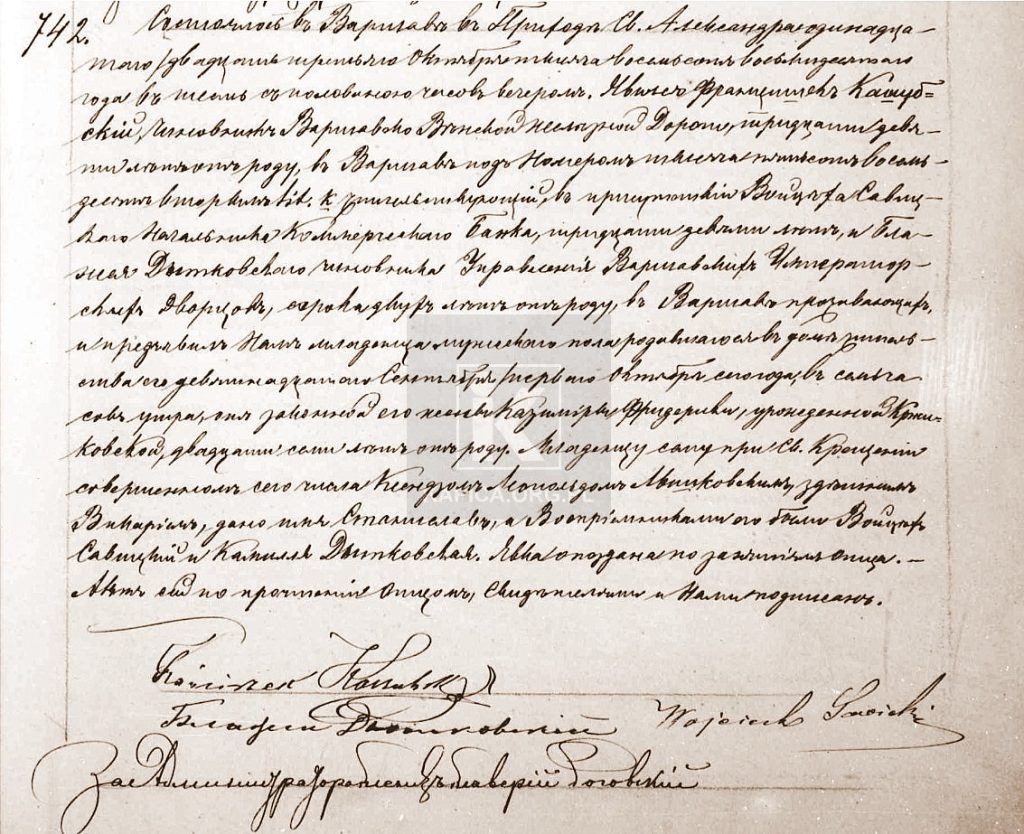 742. Состоялось въ Варшавѣ въ Приходѣ Св. Александра одинадца-
таго /двадцать третьяго Октября тысяча восемьсотъ восьмидесятаго
года въ шесть съ половиною часовъ вечеромъ. Явился Францишекъ Кашуб-
скій, Чиновникъ Варшавско Вѣнской желѣзной Дороги, тридцати девя-
ти лѣтъ отъ роду, въ Варшавѣ подъ Номеромъ тысяча пятьсотъ восемь-
десятъ вторымъ lit. k жительствующій, въ присутствіи Войцѣха Савиц-
каго Начальника Коммерческаго Банка, тридцати девяти лѣтъ, и Бла-
жея Дытковскаго чиновника Управленія Варшавскихъ Император-
скихъ Дворцовъ, сорока двухъ лѣтъ отъ роду, въ Варшавѣ проживающихъ,
и предъявилъ Намъ младенца мужескаго пола родившагося въ домѣ житель-
ства его девятнадцатаго Сентября /перваго Октября сего года, въ семь ча-
совъ утра, отъ законной его жены Казиміры Фридерики, урожденной
ковской, двадцати семи лѣтъ отъ роду. Младенцу сему при Св. Крещеніи
совершенномъ сего числа Ксендзомъ Леопольдомъ Лышковскимъ, здѣшнимъ
Викаріемъ, дано имя Станиславъ, а Воспріемниками его были Войцѣхъ
Савицкій и Камилля Дытковская. Явка опоздана по занятіямъ отца. —
Актъ сей по прочтеніи Отцомъ, Свидѣтелями и Нами подписанъ.
K
AFICA.ORG.PL
Franciszek Kaszubski
Блажей Дытковскій Wojciech Sawicki
За Администратора